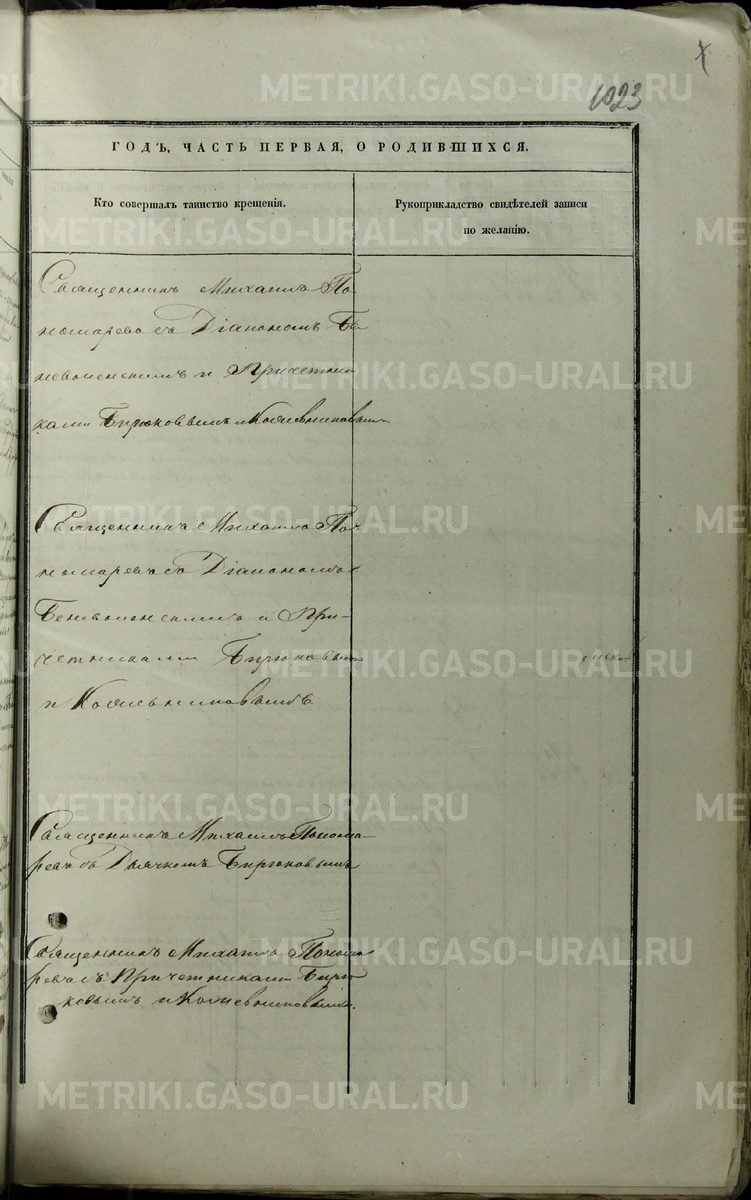 1023
ГОДЪ, ЧАСТЬ ПЕРВАЯ, О РОДИВШИХСЯ.
Кто совершалъ таинство крещенія.
Рукоприкладство свидѣтелей записи
по желанію.
Священникъ Михаилъ По-
номаревъ съ Діакономъ Бе-
неволенскимъ и Причетни-
ками Бирюковымъ и Кожевниковымъ
Священникъ Михаилъ По-
номаревъ съ Діакономъ
Беневоленскимъ и При-
четниками Бирюковымъ
и Кожевниковымъ.
Священникъ Михаилъ Понома-
ревъ съ Дьячкомъ Бирюковымъ
Священникъ Михаилъ Понома-
ревъ съ Причетниками Бирю-
ковымъ и Кожевниковымъ.
METRIKI.GASO-URAL.RU